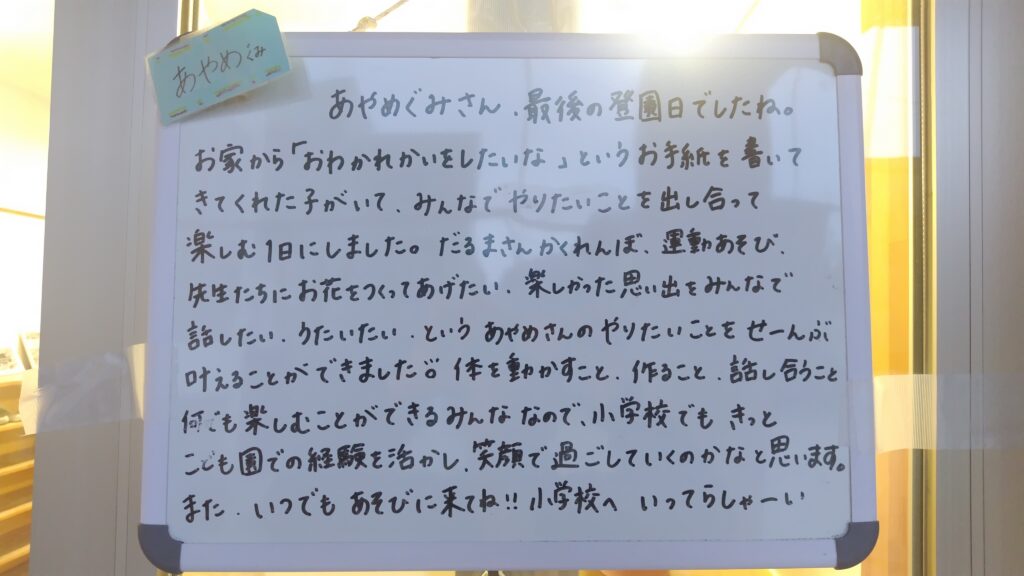 あやめぐみ
あやめぐみさん、最後の登園日でしたね。
お家から「おわかれかいをしたいな」というお手紙を書いて
きてくれた子がいて、みんなでやりたいことを出し合って
楽しむ1日にしました。だるまさんかくれんぼ、運動あそび、
先生たちにお花をつくってあげたい、楽しかった思い出をみんなで
話したい、うたいたい、というあやめさんのやりたいことをせーんぶ
叶えることができました 体を動かすこと、作ること、話し合うこと
何でも楽しむことができるみんななので、小学校でもきっと
こども園での経験を活かし、笑顔で過ごしていくのかなと思います。
また、いつでもあそびに来てね!!小学校へいってらしゃーい